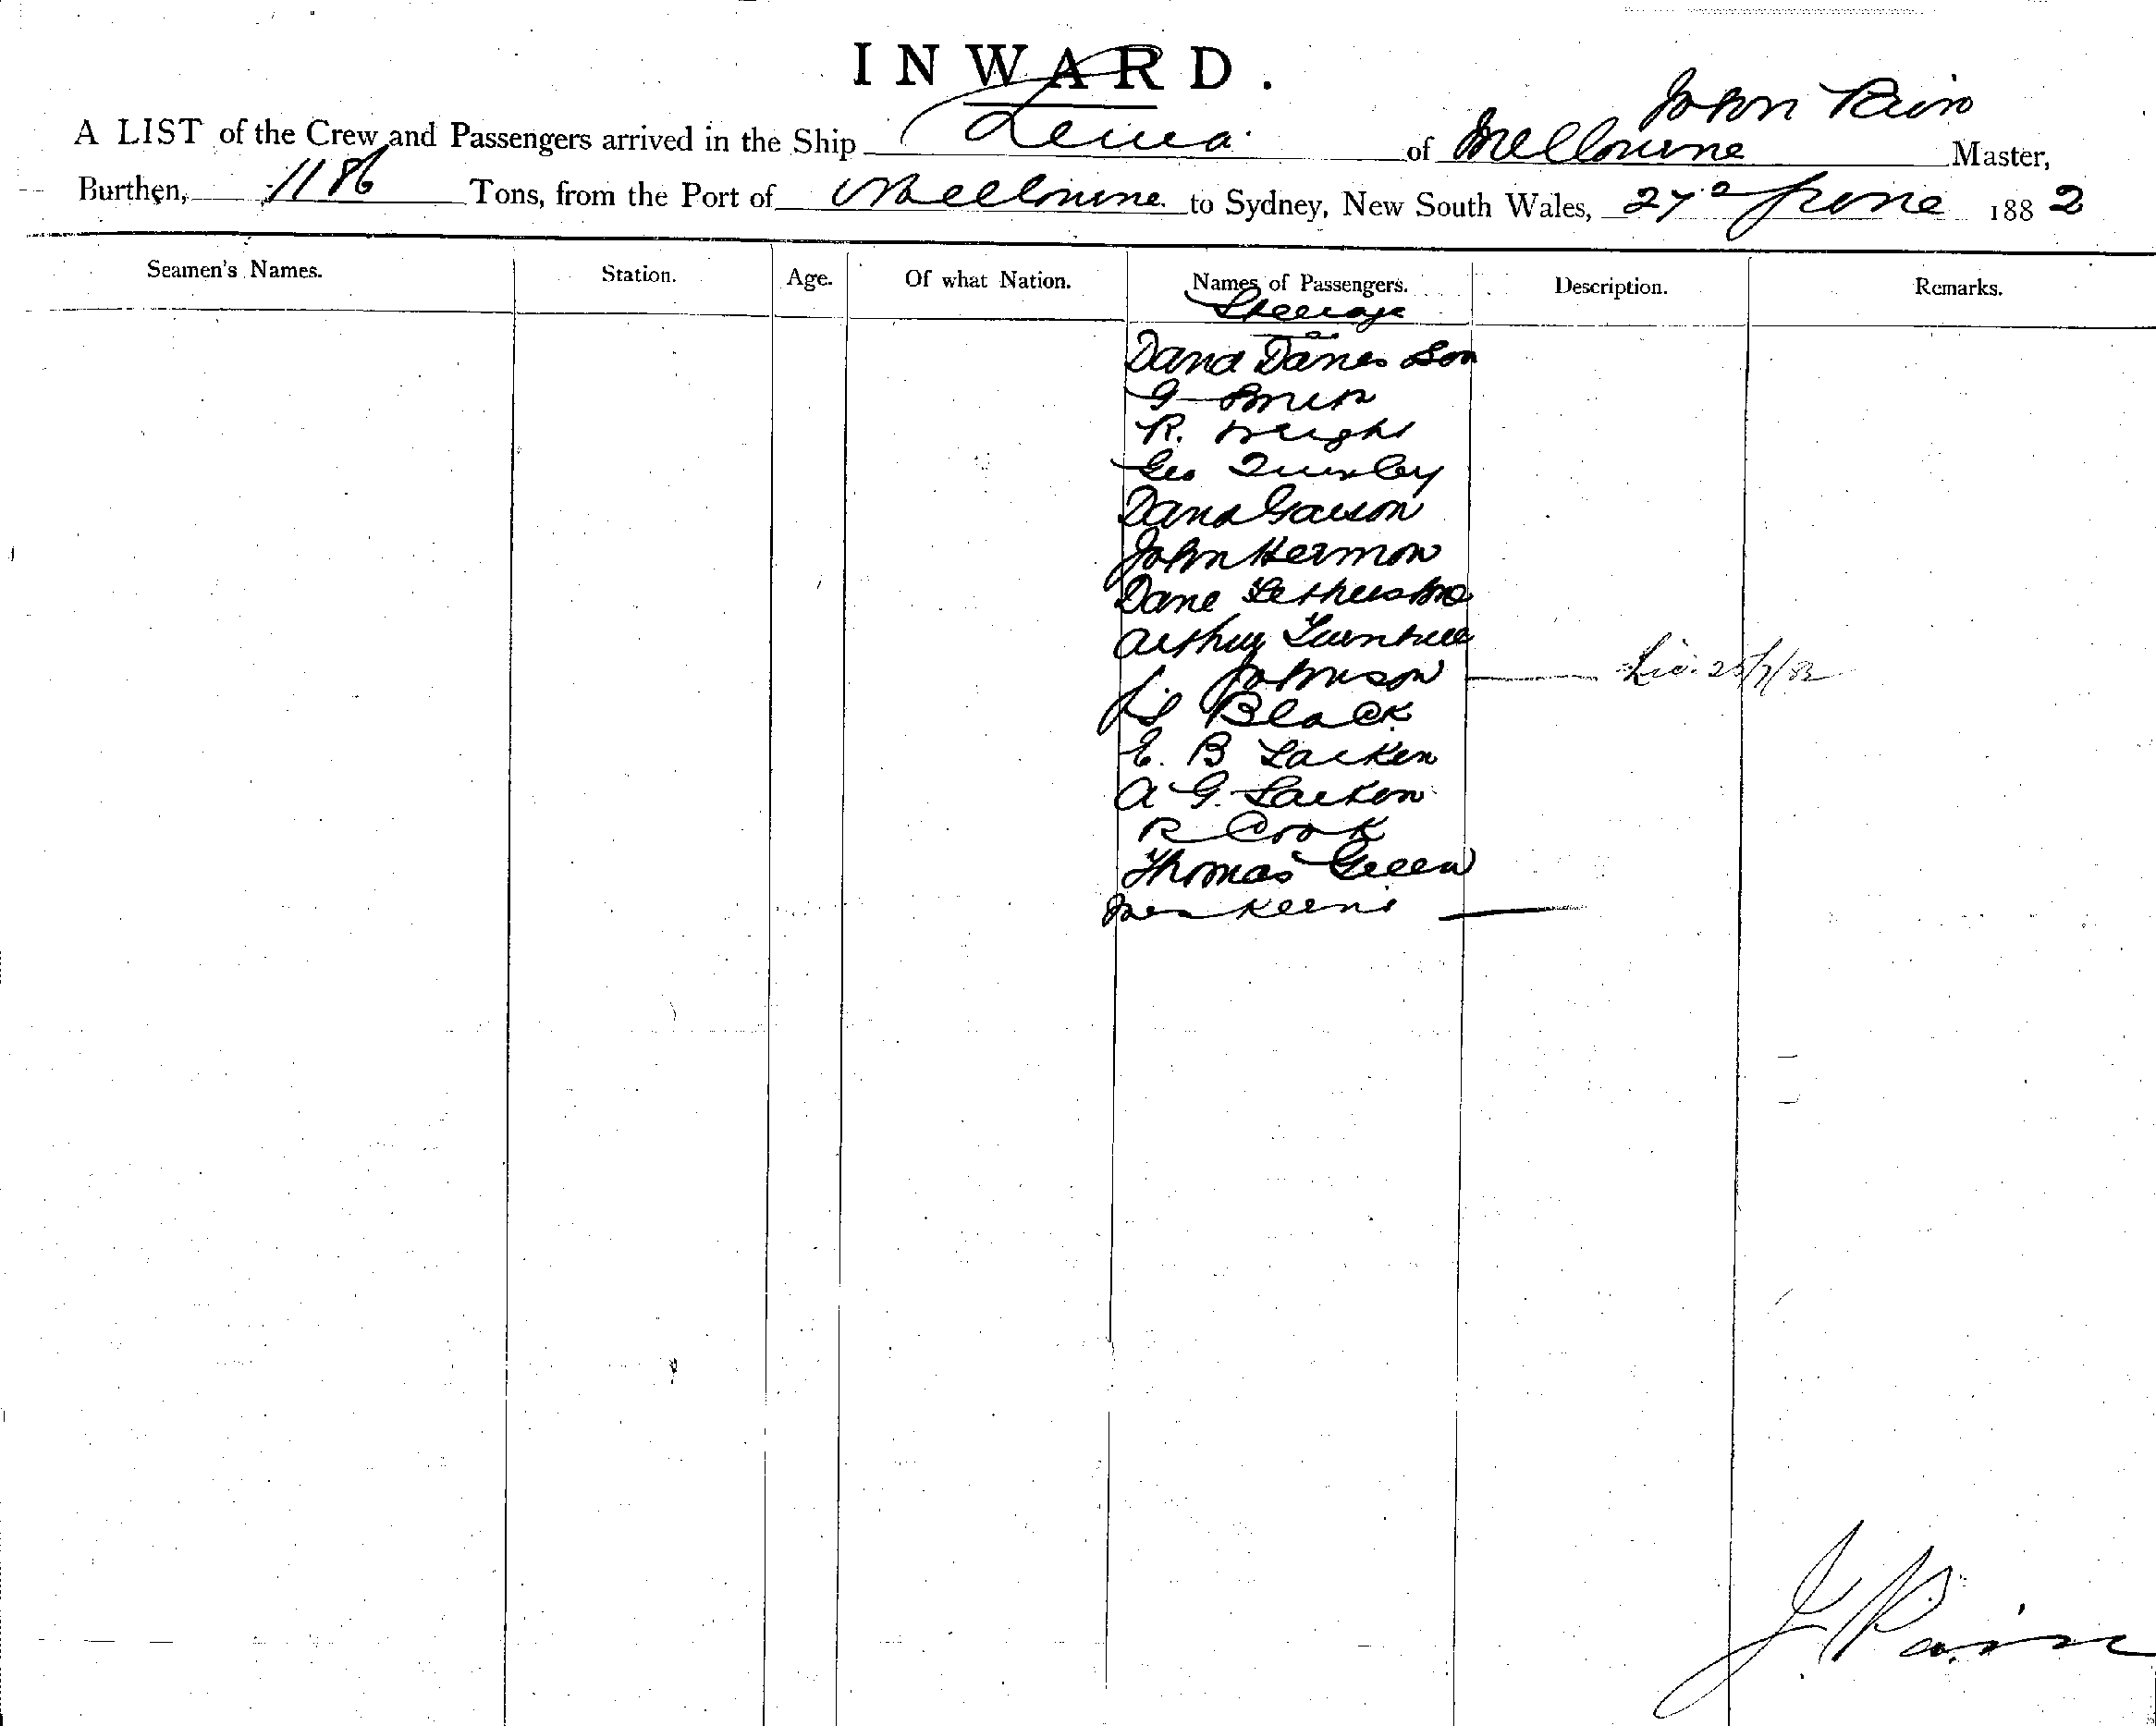 INWARD.
A LIST of the Crew and Passengers arrived in the Ship of Melbourne John Master,
Burthen, 1186 Tons, from the Port of Melbourne to Sydney, New South Wales, 27 June 1882
Seamen's Names. Station. Age. Of what Nation. Names of Passengers. Description. Remarks.
Steerage
Son
G
R. Wright
Geo
John Hermon
Arthur Turnbull
J. Johnson
Black
E. B Larken
A G. Larken
R Cook
Thomas Green
Keene
J